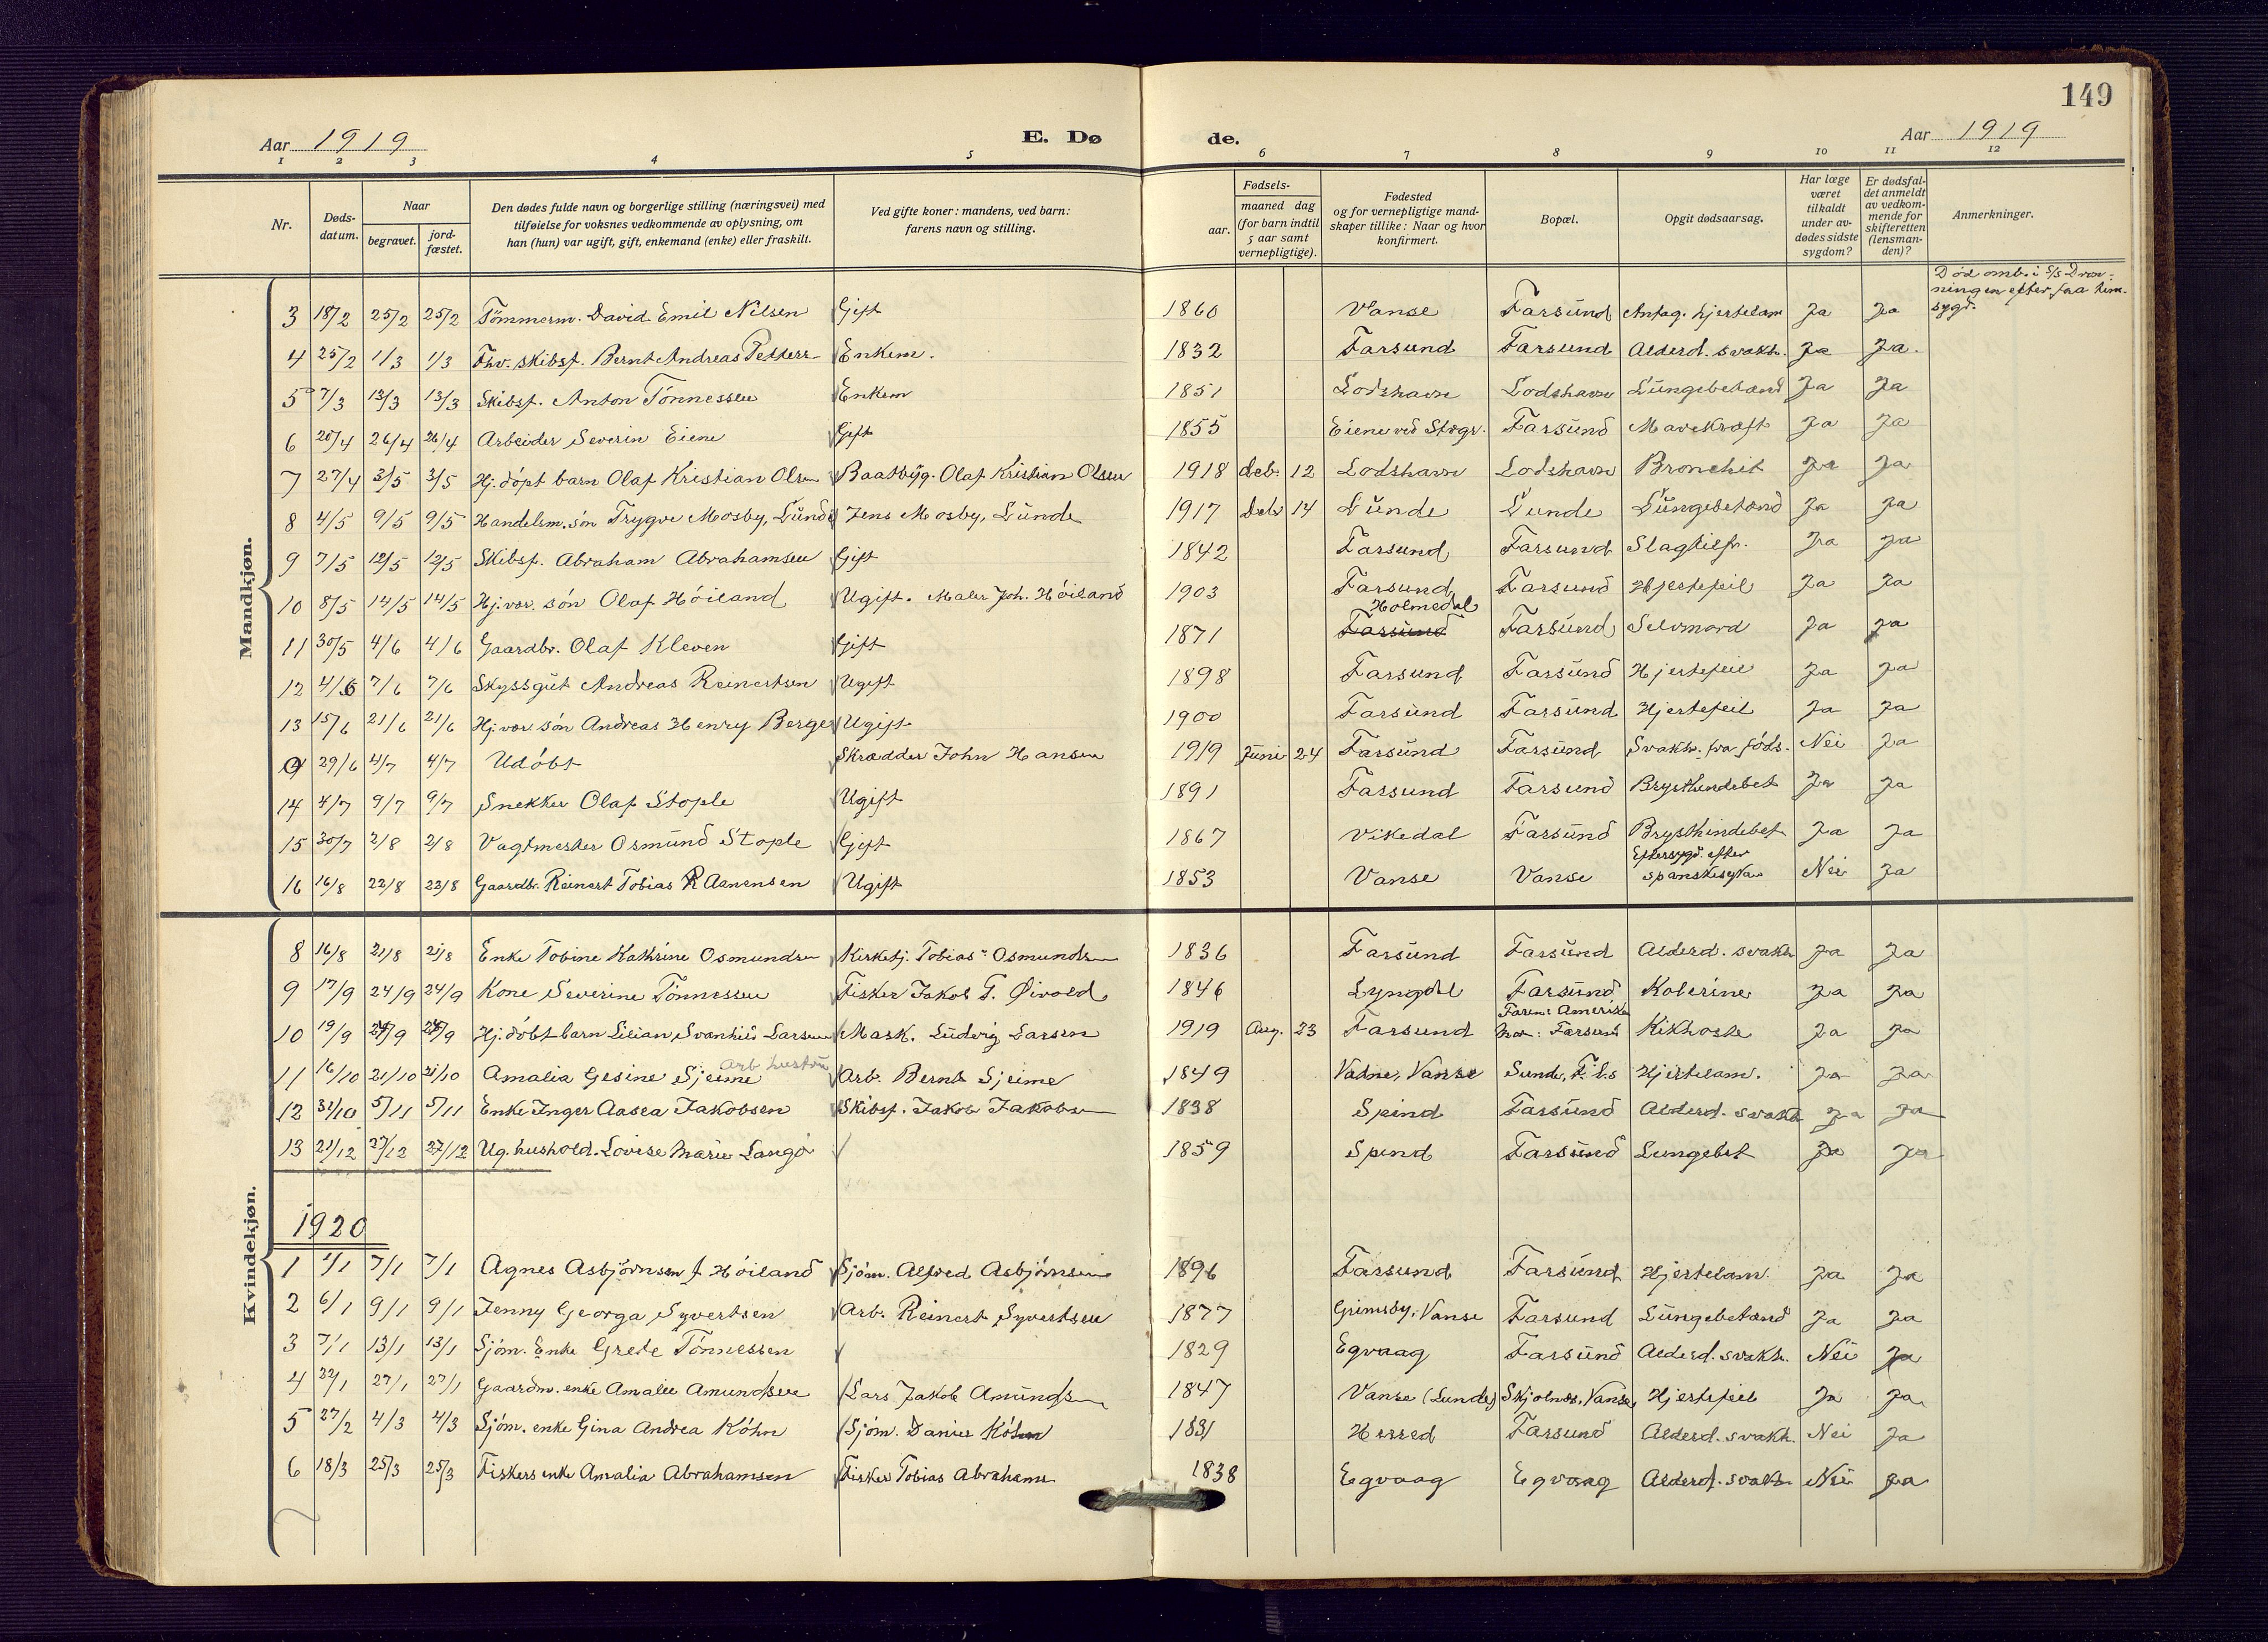 149
Aar 1919 E. Døde. Aar 1919
1 2 3 4 5 6 7 8 9 10 11 12
Nr. Døds-datum. Naar begravet. jord-fæstet. Den dødes fulde navn og borgerlige stilling (næringsvei) med tilføielse for voksnes vedkommende av oplysning, om han (hun) var ugift, gift, enkemand (enke) eller fraskilt. Ved gifte koner: mandens, ved barn: farens navn og stilling. Fødsels- aar. maaned dag (for barn indtil 5 aar samt vernepligtige). Fødested og for vernepligtige mand-skaper tillike: Naar og hvor konfirmert. Bopæl. Opgit dødsaarsag. Har læge været tilkaldt under av-dødes sidste sygdom? Er dødsfal-det anmeldt av vedkom-mende for skifteretten (lensman-den)? Anmerkninger.
Mandkjøn.
3 18/2 25/2 25/2 Tømmerm. David Emil Nilsen Gift 1860 Vanse Farsund Antag. hjertelam Ja Ja Død omb. i S/S Dron-ningen efter faa tim. sygd.
4 25/2 1/3 1/3 Fhv. skibsf. Bernt Andreas Petters Enkem. 1832 Farsund Farsund Alderd. svakh. Ja Ja.
5 7/3 13/3 13/3 Skibsf. Anton Tønnessen Enkem 1851 Lodshavn Lodshavn Lungebetænd Ja Ja
6 20/4 26/4 26/4 Arbeider Severin Eiene Gift 1855 Eiene ved Stogr. Farsund Mavekræft Ja Ja
7 27/4 3/5 3/5 Hj. døpt barn Olaf Kristian Olsen Baatbyg. Olaf Kristian Olsen 1918 deb. 12 Lodshavn Lodshavn Bronchit Ja Ja
8 4/5 9/5 9/5 Handelsm. søn Trygve Mosby, Lunde Jens Mosby, Lunde 1917 deb 14 Lunde Lunde Lungebetænd Ja Ja
9 7/5 12/5 12/5 Skibsf. Abraham Abrahamsen Gift 1842 Farsund Farsund Slagtilf. Ja Ja
10 8/5 14/5 14/5 Hj. vær. søn Olaf Høiland Ugift. Maler Joh. Høiland 1903 Farsund Farsund Hjertefeil Ja Ja
11 30/5 4/6 4/6 Gaardbr. Olaf Kleven Gift 1871 Farsund Holmedal Farsund Selvmord Ja Ja
12 4/6 7/6 7/6 Skyssgut Andreas Reinertsen Ugift 1898 Farsund Farsund Hjertefeil Ja Ja
13 15/6 21/6 21/6 Hj. vær. søn Andreas Henry Berge Ugift 1900 Farsund Farsund Hjertefeil Ja Ja
29/6 4/7 4/7 Udøbt Skrædder John Hansen 1919 Juni 24 Farsund Farsund Svakh. fra føds. Nei Ja
14 4/7 9/7 9/7 Snekker Olaf Stople Ugift 1891 Farsund Farsund Brysthindebet Ja Ja
15 30/7 2/8 2/8 Vagtmester Osmund Stople Gift 1867 Vikedal Farsund Brysthindebet Ja Ja
16 16/8 22/8 22/8 Gaardbr. Reinert Tobias R Aanensen Ugift 1853 Vanse Vanse Eftersygd. efter spanskesyka Nei Ja
Kvindekjøn.
8 16/8 21/8 21/8 Enke Tobine Kathrine Osmundsen Kirketj. Tobias Osmundsen 1836 Farsund Farsund Alderd. svakh Ja Ja
9 17/9 24/9 24/9 Kone Severine Tønnessen Fisker Jakob T. Øivold 1846 Lyngdal Farsund Kolerine Ja Ja
10 19/9 24/9 24/9 Hj. døbt barn Lilian Svanhild Larsen Mask. Ludvig Larsen 1919 Aug. 23 Farsund Faren: Amerika Mor: Farsund Kikhoste Ja Ja
11 16/10 21/10 21/10 Amalia Gesine Sjeime Arb hustru Arb. Bernt Sjeime 1849 Vatne, Vanse Sunde, F. L.s Hjertelam. Ja Ja
12 31/10 5/11 5/11 Enke Inger Aasea Jakobsen Skibsf. Jakob Jakobsen 1838 Spind Farsund Alderd. svakh Ja Ja
13 21/12 27/12 27/12 Ug. hushold. Lovise Marie Langø 1859 Spind Farsund Lungebet Ja Ja
1920
1 4/1 7/1 7/1 Agnes Asbjørnsen f Høiland Sjøm. Alfred Asbjørnsen 1896 Farsund Farsund Hjertelam. Ja Ja
2 6/1 9/1 9/1 Jenny Georga Syvertsen Arb. Reinert Syvertsen 1877 Grimsby, Vanse Farsund Lungebetænd Ja Ja
3 7/1 13/1 13/1 Sjøm. Enke Grete Tønnessen 1829 Egvaag Farsund Alderd. svakh. Nei Ja
4 22/1 27/1 27/1 Gaardm. enke Amalie Amundsen Lars Jakob Amunds 1847 Vanse (Lunde) Skjolnes, Vanse Hjertefeil Ja Ja
5 27/2 4/3 4/3 Sjøm. enke Gina Andrea Køhn Sjøm. Daniel Køhn 1831 Herred Farsund Alderd. svakh. Nei Ja
6 18/3 25/3 25/3 Fiskers enke Amalia Abrahamsen Fisker Tobias Abrahams 1838 Egvaag Egvaag Alderd. svakh Nei Ja